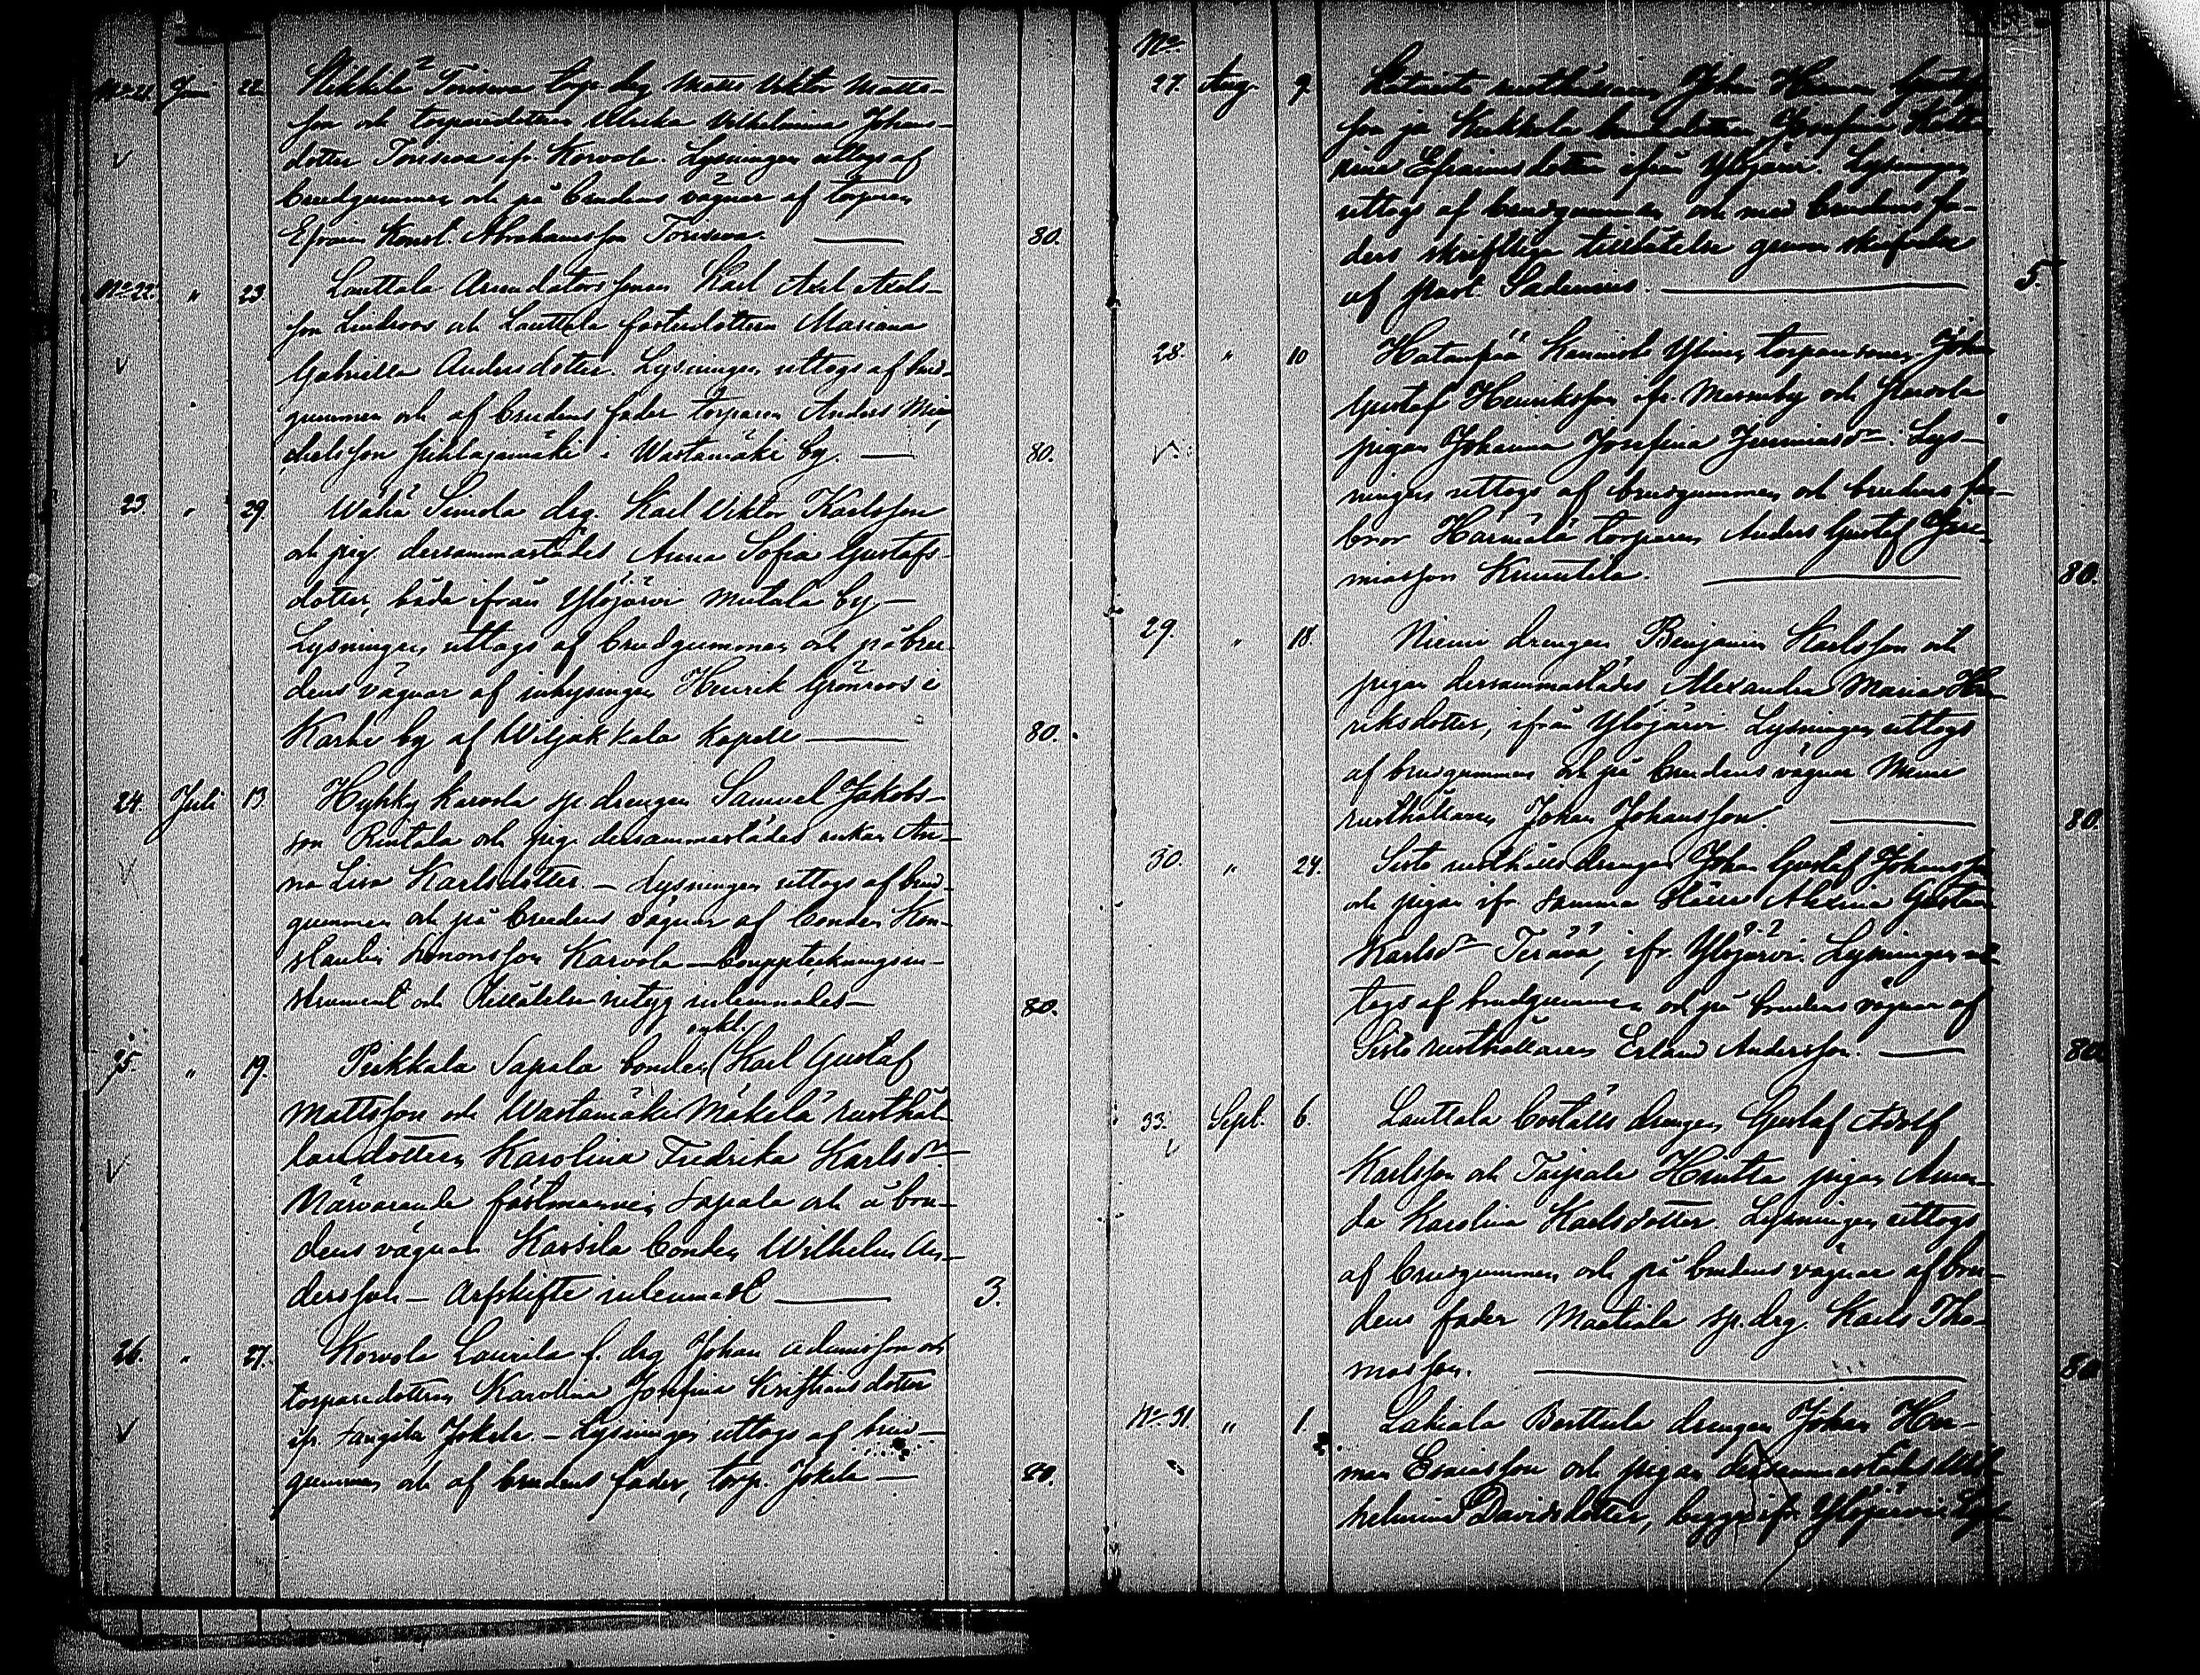 No 21. Juni 22. Mikkilä Toriseva torp. drg Matts Viktor Matts-
son och torparedottren Ulrika Vilhelmina Johans-
dotter Toriseva ifr. Korvola. Lysningen uttogs af
brudgummen och på brudens vägnar af torparen
Efraim Konst. Abrahamsson Toriseva. — 80.
No 22. " 23. Lauttala Arrendators sonen Karl Axel Axels-
son Lindroos och Lauttala fosterdottren Mariana
Gabriella Andersdotter. Lysningen uttogs af brud-
gummen och af brudens fader torparen Anders Mi-
chelsson Pihlajamäki i Wastamäki by. — 80.
23. " 29. Wähä Simola drg. Karl Viktor Karlsson
och pig. dersammastädes Anna Sofia Gustafs-
dotter, båda ifrån Ylöjärvi Mutala by —
Lysningen uttogs af brudgummen och på bru-
dens vägnar af inhysingen Henrik Grönroos i
Karhe by af Wiljakkala Kapell — 80.
24. Juli 13. Hyhky Karvola sp. drengen Samuel Jakobs-
son Rintala och pig. dersammastädes enkan An-
na Lisa Karlsdotter. — Lysningen uttogs af brud-
gummen och på brudens vägnar af bonden Kon-
stantin Simonsson Karvola — bouppteckningsin-
strument och tillåtelse intyg inlemnades — 80.
enkl.
25. " 19. Pirkkala Sapala bonden (Karl Gustaf
Mattsson och Wastamäki Mäkelä rusthål-
laredottren Karolina Fredrika Karlsdr.
Närvarande fästmannen Sapala och å bru-
dens vägnar Karsila bonden Wilhelm An-
dersson — Arfskifte inlemnadt — 3.
26. " 27. Korvola Laurila f. drg Johan Adamsson och
torparedottren Karolina Josefina Kristiansdotter
ifr. Jokela. — Lysningen uttogs af brud-
gummen och af brudens fader, torp. Jokela — 80.
No
27. Aug. 9. rusthållaren Johan Herman
son ja bondedottren Josefina
Efraimsdotter ifrån Ylöjärvi. Lysningen
uttogs af brudgummen och med brudens fa-
ders skriftliga tillåtelse genom skrifvelse
af past. Sadenius. — 5.
28. " 10. Hatanpää Kaunisto Ylinen torparsonen Johan
Gustaf Henriksson ifr. Messuby och Karvola
pigan Johanna Josefina Jeremiasdr. Lys-
ningen uttogs af brudgummen och brudens far-
bror Härmälä torparen Anders Gustaf Jere-
miasson Knuutila. — 80.
29. " 18. Niemi drengen Benjamin Karlsson och
pigan dersammastädes Alexandra Maria Hen-
riksdotter, ifrån Ylöjärvi. Lysningen uttogs
af brudgummen och på brudens vägnar Niemi
rusthållaren Johan Johansson. — 80.
30. " 24. Sisto rusthålls drengen Johan Gustaf Johansson
och pigan ifr samma ställe Alexina Gustava
Karlsdr Terävä, ifr. Ylöjärvi. Lysningen ut-
togs af brudgummen och på brudens vägnar af
Sisto rusthållaren Erland Andersson. — 80.
33. Sept. 6. Lauttala boställs drengen Gustaf Adolf
Karlsson och Taipale Hintta pigan Aman-
da Karolina Karlsdotter. Lysningen uttogs
af brudgummen och på brudens vägnar af bru-
dens fader Maatiala sp. drg. Karl Tho-
masson. — 80.
No 31. " 1. Lakiala Perttula drengen Johan Her-
man Esaiasson och pigan dersammastädes Wil-
helmina Davidsdotter, begge ifr. Ylöjärvi. Lys-